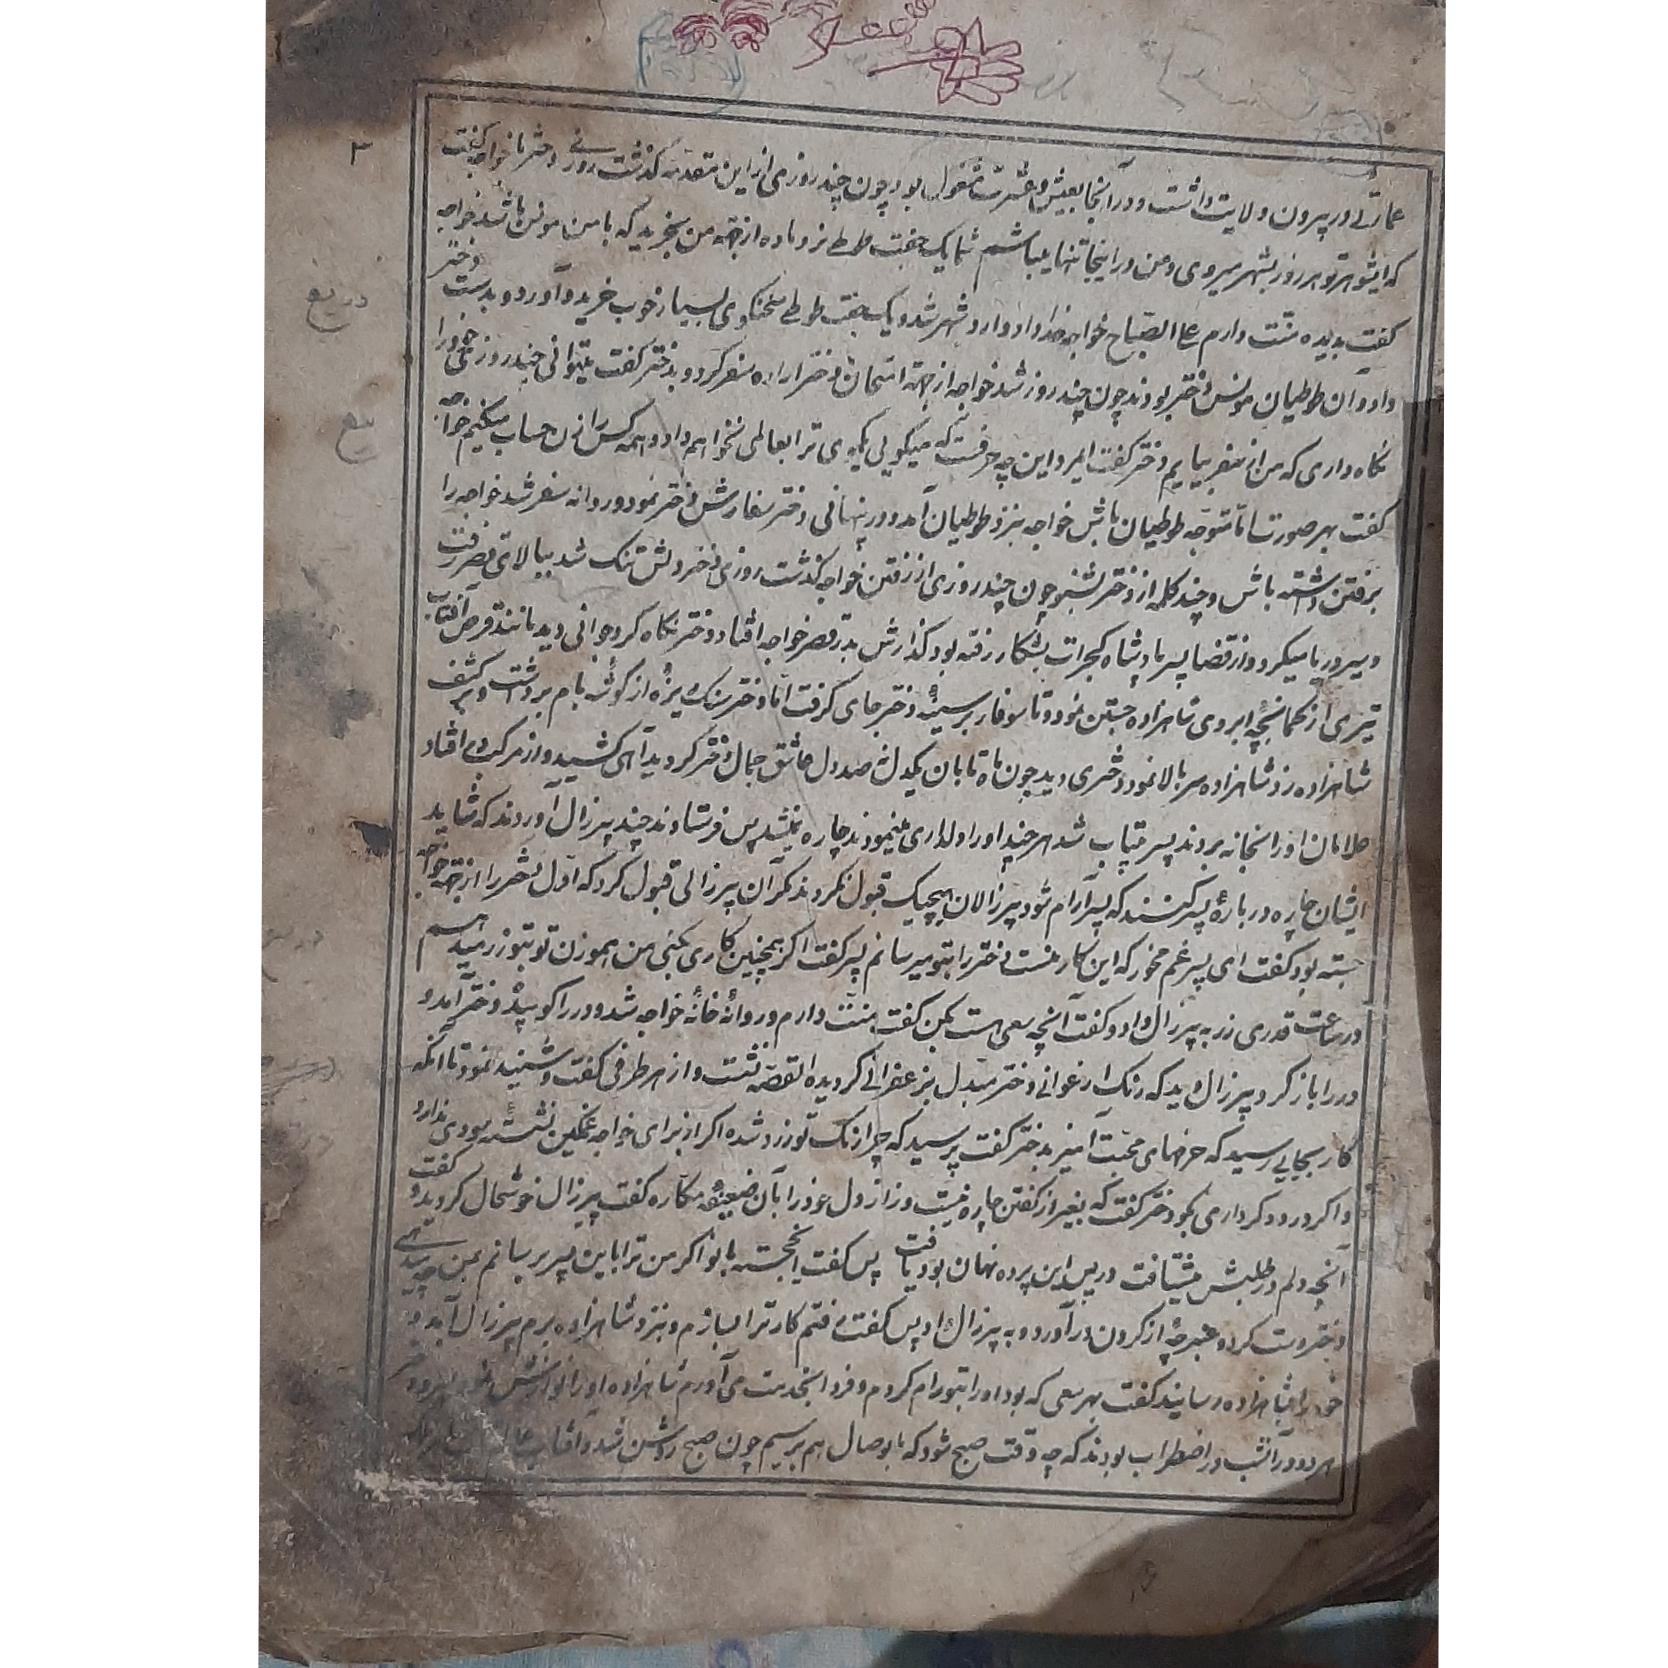 ۳
عمارتی در بیرون ولایت داشت و در آنجا بعیش و عشرت مشغول بود چون چند روزی از این مقدمه گذشت روزی دختر با خواجه گفت
که ایشوهر تو هر روز بشهر میروی و من در اینجا تنها میباشم شما یک جفت طوطی نر و ماده از جهة من بخرید که با من مونس باشد خواجه
گفت بدیده منت دارم علی الصباح خواجه خداداد وارد شهر شد و یک جفت طوطی سخنکوی بسیار خوب خرید و آورد و بدست دختر
داد و آن طوطیان مونس دختر بودند چون چند روز شد خواجه از جهة امتحان دختر اراده سفر کرد و بدختر گفت میتوانی چند روز خود را
نکاه داری که من از سفر بیایم دختر گفت ایمرد این چه حرفست که میکوئی یکموی ترا بعالمی نخواهم داد و همه کس را زن حساب میکنیم خواجه
گفت بهر صورت اما متوجه طوطیان باش خواجه بنزد طوطیان آمد و در پنهانی دختر سفارش دختر نمود و روانه سفر شد خواجه را
برفتن داشته باش و چند کلمه از دختر بشنو چون چند روزی از رفتن خواجه گذشت روزی دختر دلش تنک شد ببالای قصر رفت
و سیر دریا میکرد و از قضا پسر پادشاه کجرات بشکار رفته بود گذارش بدر قصر خواجه افتاد دختر نکاه کرد جوانی دید مانند قرص آفتاب
تیری از کمانچهٔ ابروی شاهزاده جستن نمود و تا سوفار بر سینهٔ دختر جای گرفت اما دختر سنک ریزهٔ از گوشهٔ بام برداشت و بر کتف
شاهزاده زد شاهزاده سر بالا نمود دختری دید چون ماه تابان یکدل نه صد دل عاشق جمال دختر گردید آهی کشید و از مرکب افتاد
غلامان او را بخانه بردند پسر بیتاب شد هر چند او را دلداری مینمودند چاره نمیشد پس فرستادند چند پیرزال آوردند که شاید
ایشان چاره دربارهٔ پسر کنند که پسر آرام شود پیرزالان هیچیک قبول نکردند مکر آن پیرزالی قبول کرد که اول دختر را از جهة خواجه
بسته بود گفت ای پسر غم مخور که این کار منست دختر را بتو میرسانم پسر گفت اگر همچنین کاری بکنی من هموزن تو بتو زر میدهم
در ساعت قدری زر به پیرزال داد و گفت آنچه سعی هست بکن گفت منت دارم و روانهٔ خانهٔ خواجه شد و در را کوبید دختر آمد و
در را باز کرد پیرزال دید که رنک ارغوانی دختر مبدل بزعفرانی گردیده القصه نشست و از هر طرفی گفت و شنید نمود تا آنکه
کار بجایی رسید که حرفهای محبت آمیز بدختر گفت پرسید که چرا رنک تو زرد شده اگر از برای خواجه غمگین نشستهٔ سودی ندارد
و اگر درد دگر داری بگو دختر گفت که بغیر از گفتن چاره نیست و راز دل خود را بآن ضعیفهٔ مکاره گفت پیرزال خوشحال گردید و گفت
آنچه دلم در طلبش میشتافت در پس این پرده نهان بود یافت پس گفت ایخجسته بانو اگر من ترا باین پسر برسانم بمن چه میدهی
دختر دست کرد و عنبرچهٔ از گردن درآورد و به پیرزال داد پس گفت رفتم کار ترا بسازم و بنزد شاهزاده بروم پیرزال آمد و
خود را بشاهزاده رسانید گفت بهر سعی که بود او را بتو رام کردم و فردا بخدمت می‌آورم شاهزاده او را نوازش
هر دو در آنشب در اضطراب بودند که چه وقت صبح شود که بوصال هم برسیم چون صبح روشن شد و آفتاب